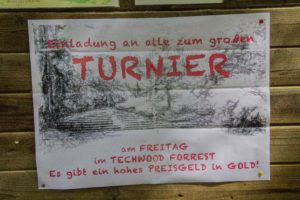 Einladung an alle zum großen
TURNIER
am FREITAG
im TECHWOOD FORREST
Es gibt ein hohes PREISGELD in GOLD!